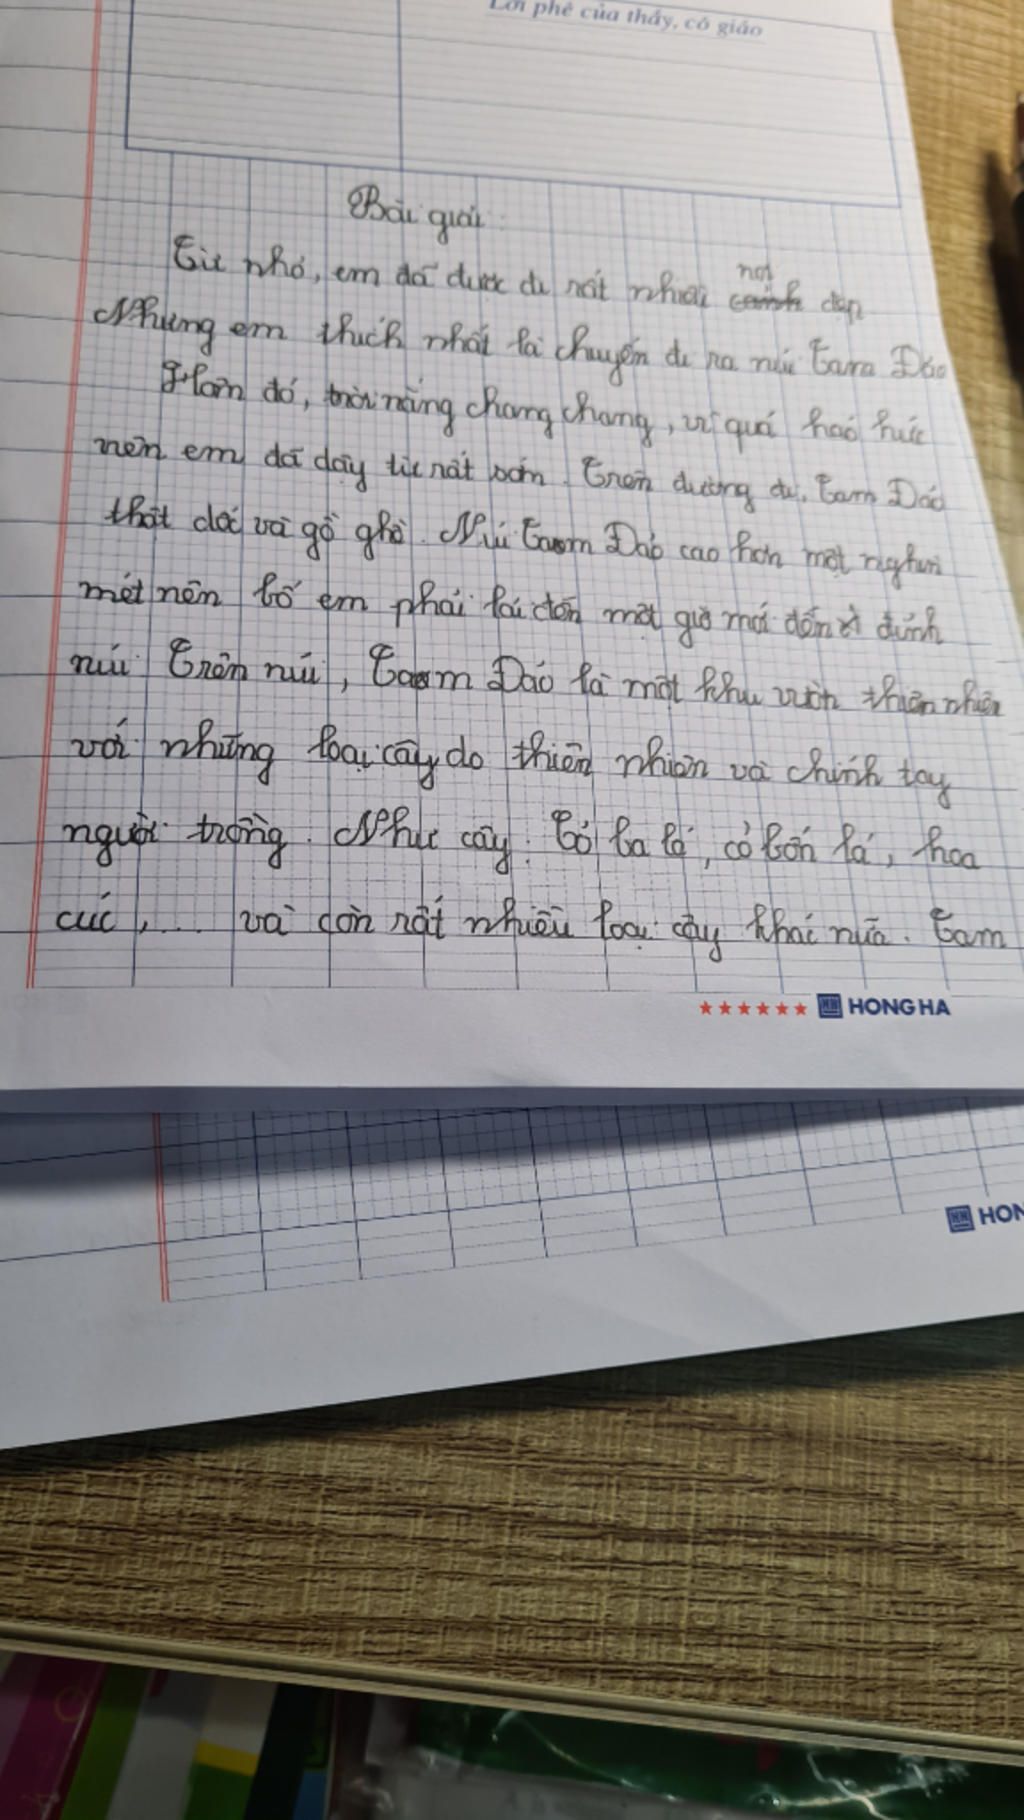 Lời phê của thầy, cô giáo
Bài giải:
Từ nhỏ, em đã được đi rất nhiều nơi đẹp
Nhưng em thích nhất là chuyến đi ra núi Tam Đảo
Hôm đó, trời nắng chang chang, vì quá háo hức
nên em đã dậy từ rất sớm. Trên đường đi, Tam Đảo
thật dốc và gồ ghề. Núi Tam Đảo cao hơn một nghìn
mét nên bố em phải lái đến một giờ mới đến đỉnh
núi. Trên núi, Tam Đảo là một khu vườn thiên nhiên
với những loại cây do thiên nhiên và chính tay
người trồng. Như cây: Cỏ ba lá, cỏ bốn lá, hoa
cúc,... và còn rất nhiều loại cây khác nữa. Tam
HH HONG HA
HH HON